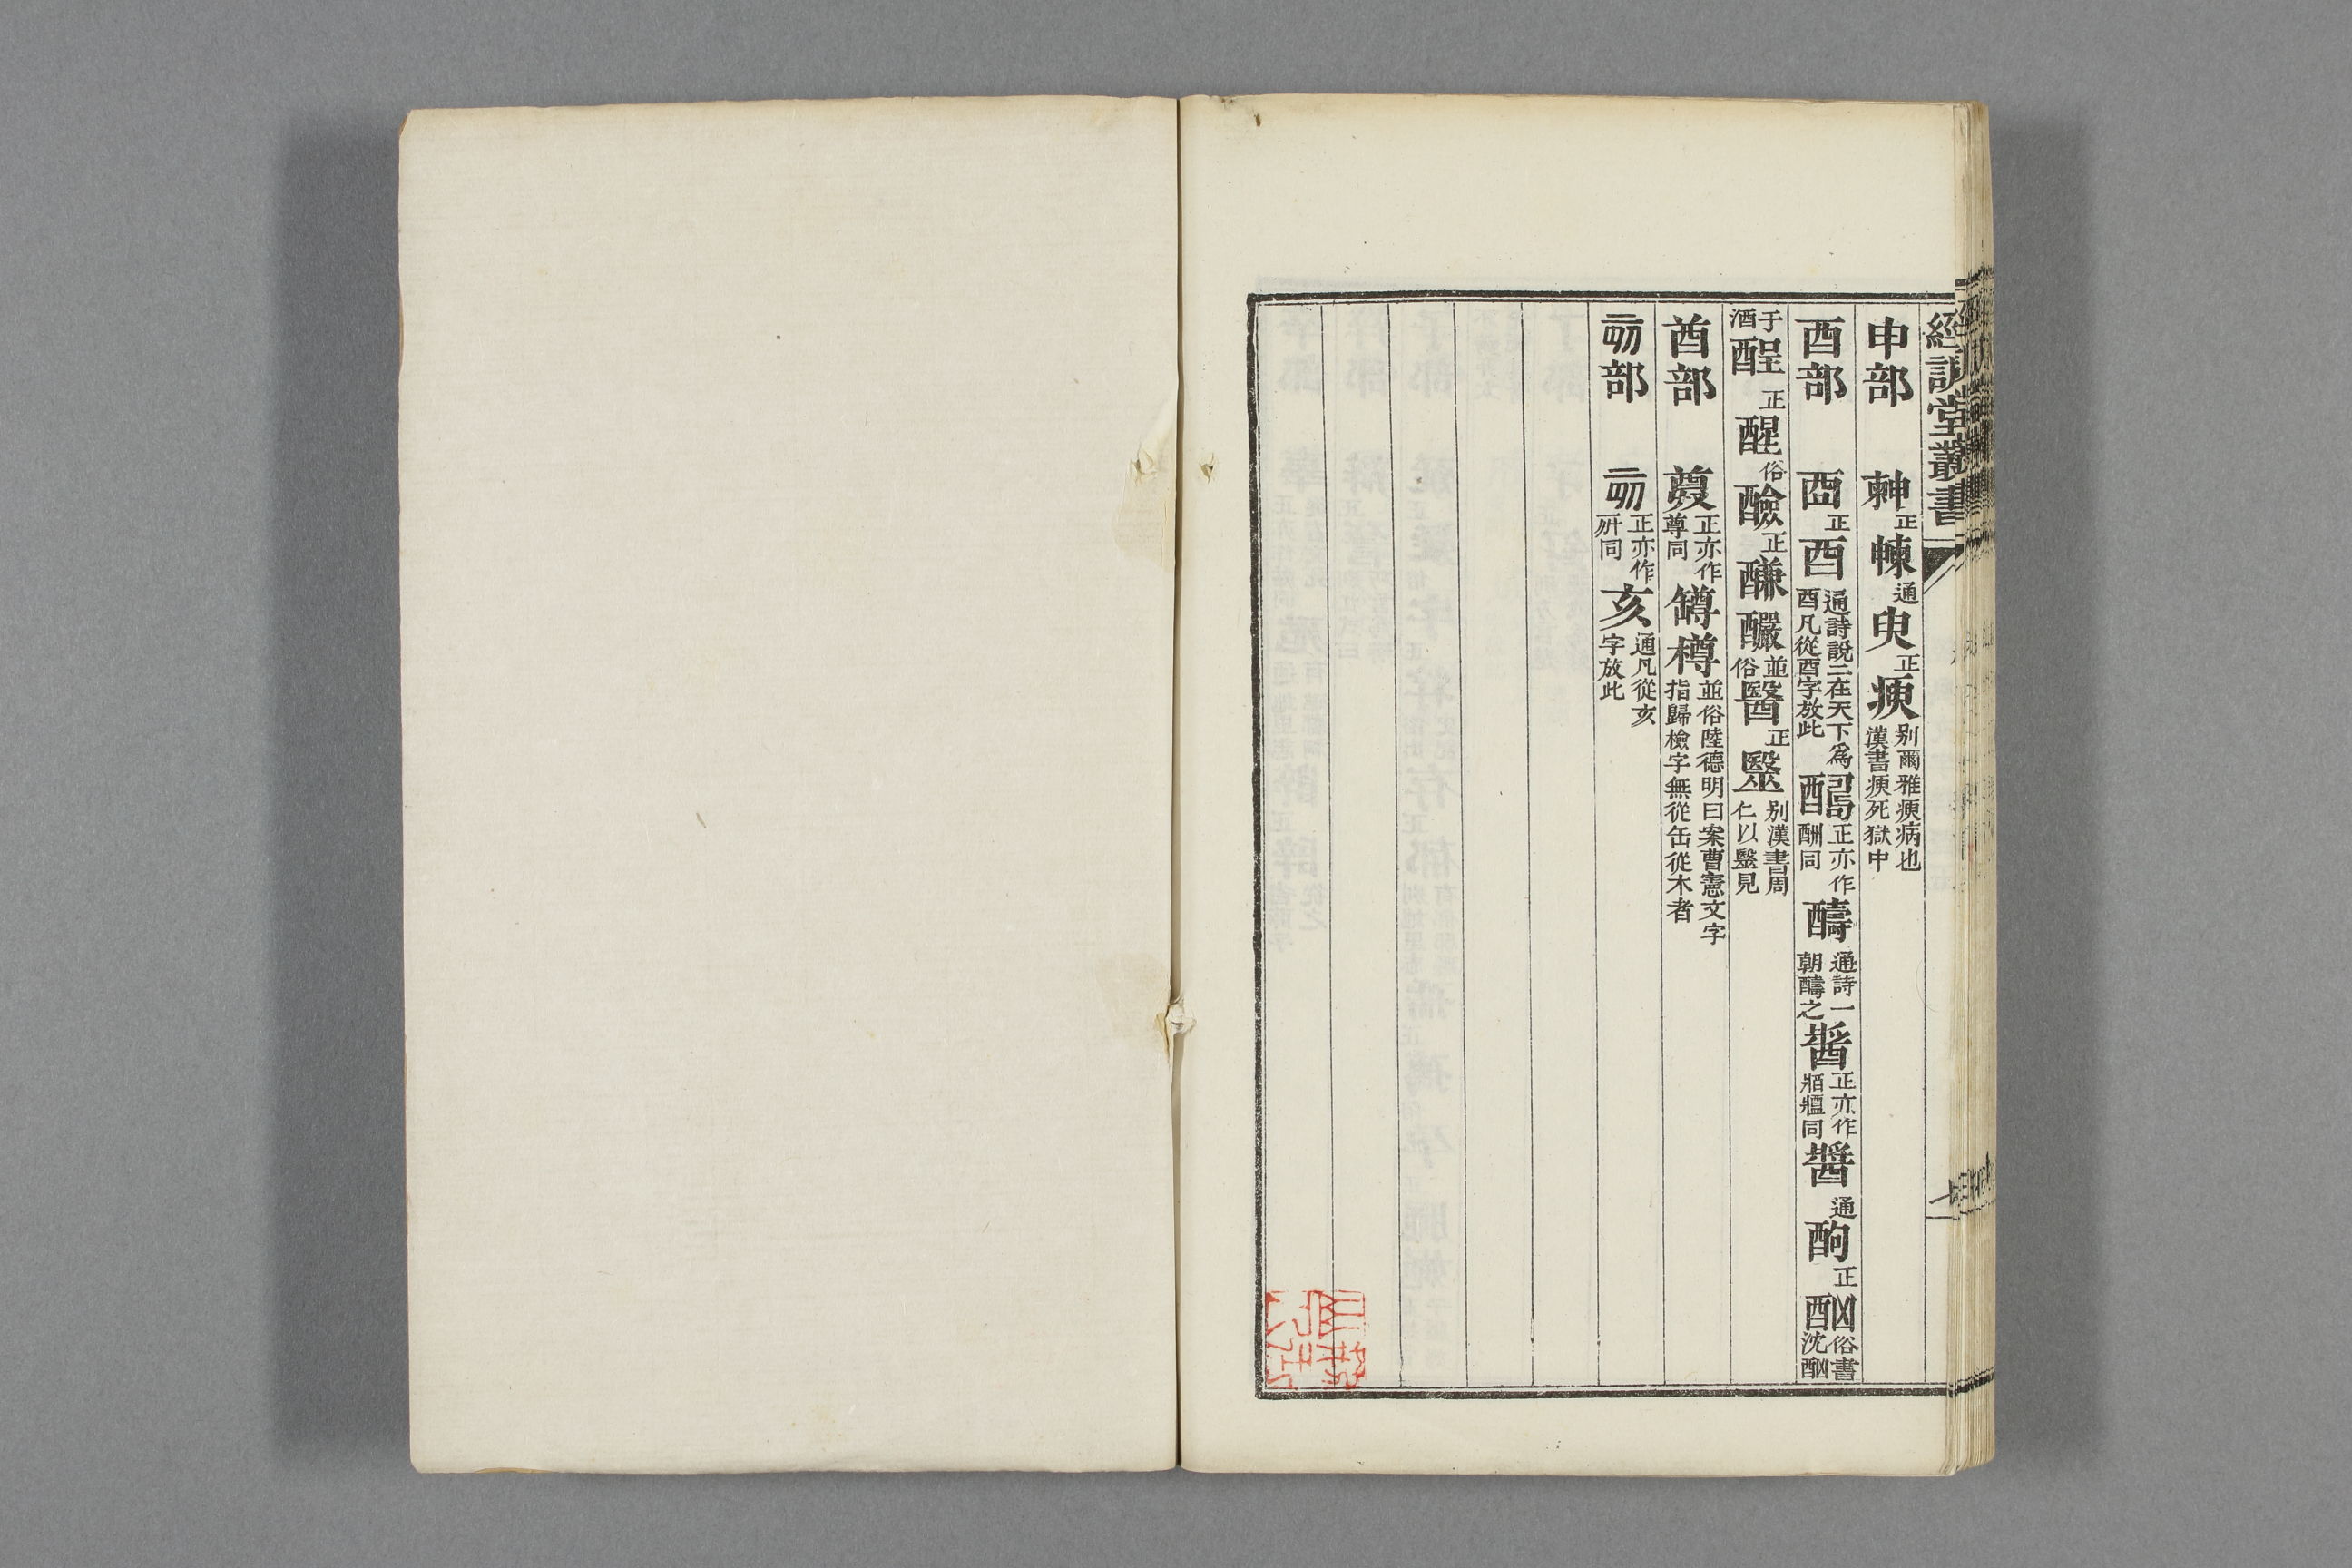 經訓堂叢書
申部 𣍃正㨂通臾正瘐别爾雅瘐病也漢書瘐死獄中
酉部 丣正酉通詩說二在天下爲酉凡從酉字放此 正亦作酬同醻通詩一朝醻之 正亦作同 通酌正酗俗書沈酗
于酒酲正醒俗醶正醶釅並俗醫正毉别漢書周仁以毉見
酋部 正亦作尊同罇樽並俗陸德明曰案曹憲文字指歸檢字無從缶從木者
部 正亦作同亥通凡從亥字放此